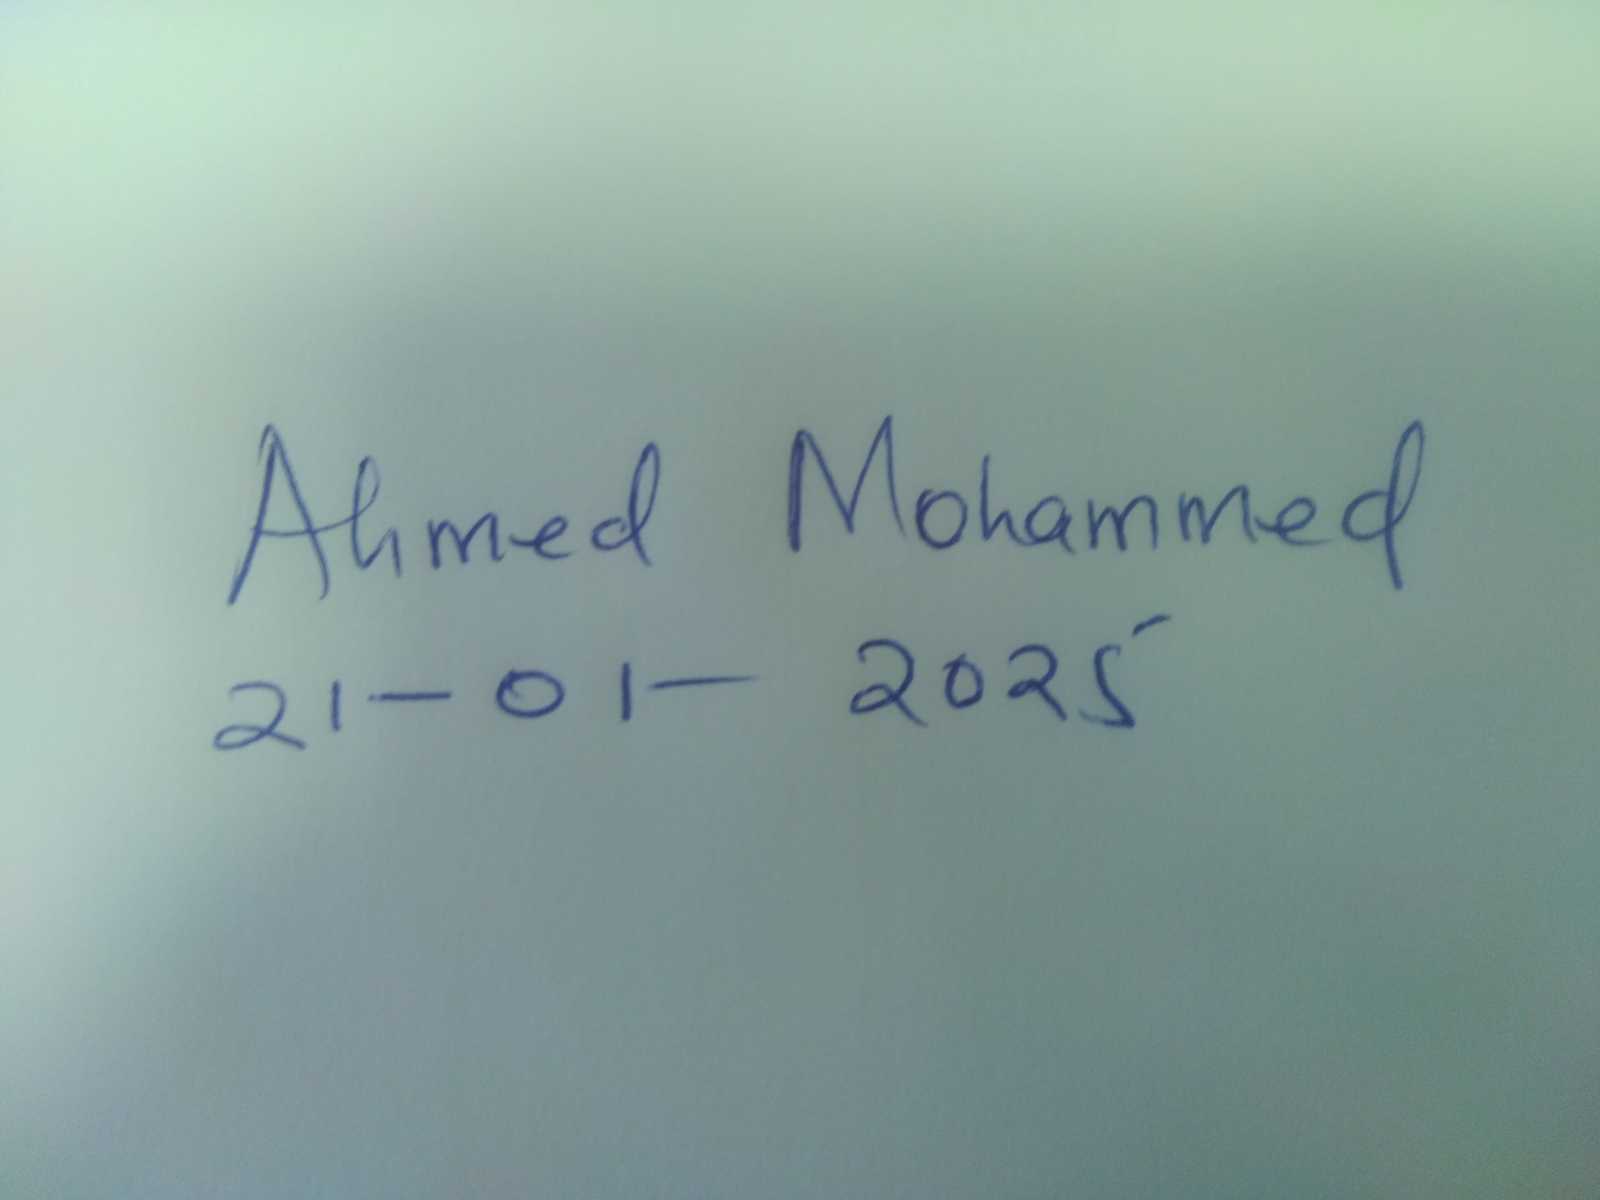 Ahmed Mohammed
21-01-2025